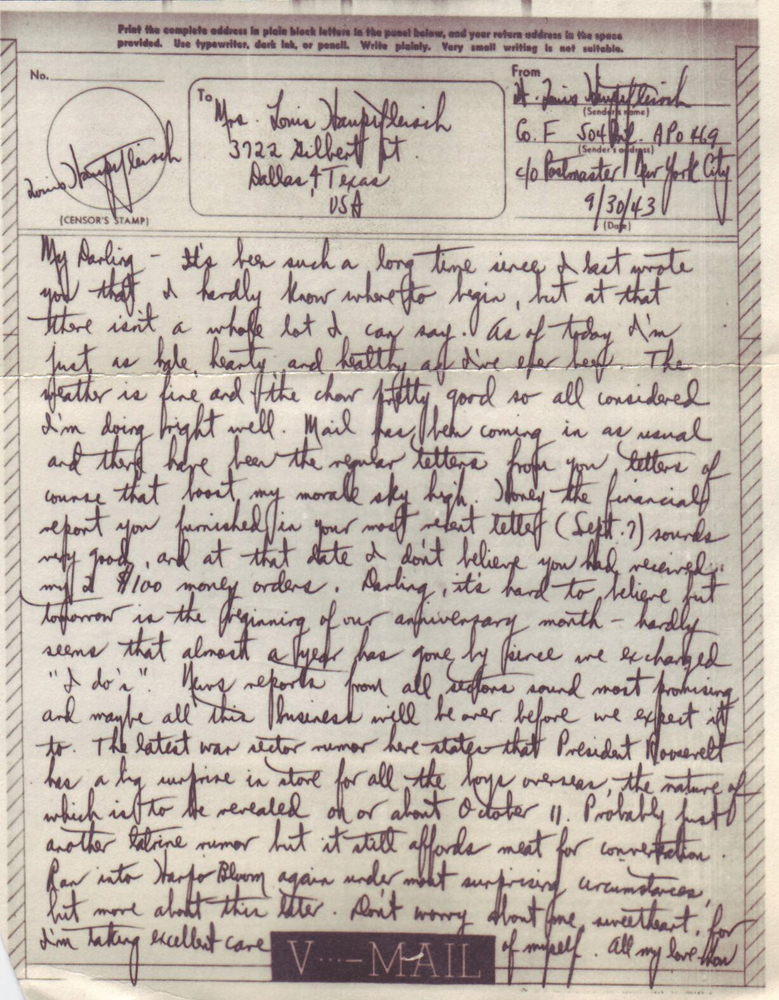 Print the complete address in plain block letters in the panel below, and your return address in the space
provided. Use typewriter, dark ink, or pencil. Write plainly. Very small writing is not suitable.
No.
(CENSOR'S STAMP)
Louis Haupfleisch
To
Mrs. Louis Haupfleisch
3722 Gilbert St
Dallas 4 Texas
USA
From
Lt. Louis Haupfleisch
(Sender's name)
Co. F 504 Inf. APO 469
(Sender's address)
c/o Postmaster New York City
9/30/43
(Date)
My Darling - It's been such a long time since I last wrote
you that I hardly know where to begin, but at that
there isn't a whole lot I can say. As of today I'm
just as hale, hearty and healthy as I've ever been. The
weather is fine and the chow pretty good so all considered
I'm doing right well. Mail has been coming in as usual
and there have been the regular letters from you, letters of
course that boost my morale sky high. Honey the financial
report you furnished in your most recent letter (Sept. 7) sounds
very good, and at that date I don't believe you had received
my 2 $100 money orders. Darling, it's hard to believe but
tomorrow is the beginning of our anniversary month - hardly
seems that almost a year has gone by since we exchanged
"I do's". News reports from all sections sound most promising
and maybe all this business will be over before we expect it
to. The latest war sector rumor here states that President Roosevelt
has a big surprise in store for all the boys overseas, the nature of
which is to be revealed on or about October 11. Probably just
another latrine rumor but it still affords meat for conversation.
Ran into Harpo Bloom again under most surprising circumstances,
but more about this later. Don't worry about me sweetheart, for
I'm taking excellent care of myself. All my love
V···-MAIL